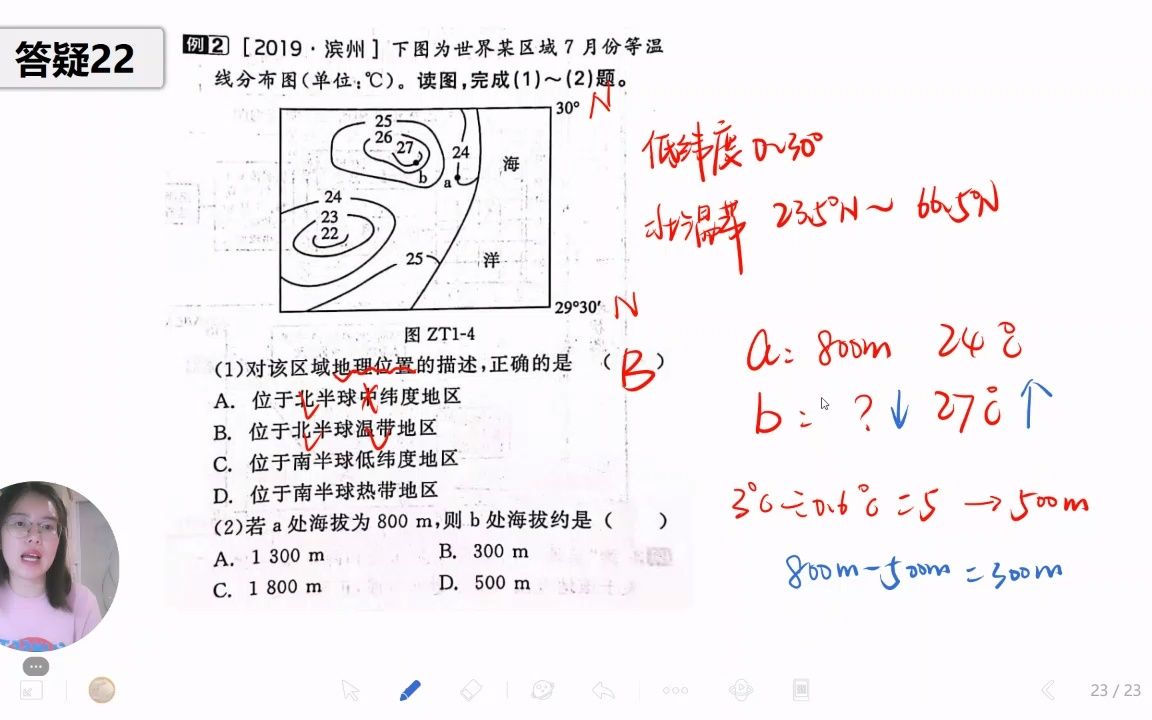 答疑22
例2 [2019·滨州] 下图为世界某区域7月份等温
线分布图(单位:℃)。读图,完成(1)～(2)题。
30° N
25
26
27
24
海
b
a
24
23
22
25
洋
29°30′ N
图 ZT1-4
(1)对该区域地理位置的描述,正确的是 ( B )
A. 位于北半球中纬度地区
B. 位于北半球温带地区
C. 位于南半球低纬度地区
D. 位于南半球热带地区
(2)若 a 处海拔为 800 m,则 b 处海拔约是 ( )
A. 1 300 m B. 300 m
C. 1 800 m D. 500 m
低纬度 0~30°
北温带 23.5°N~ 66.5°N
a: 800m 24℃
b: ?↓ 27℃↑
3℃÷0.6℃=5 →500m
800m-500m=300m
23 / 23